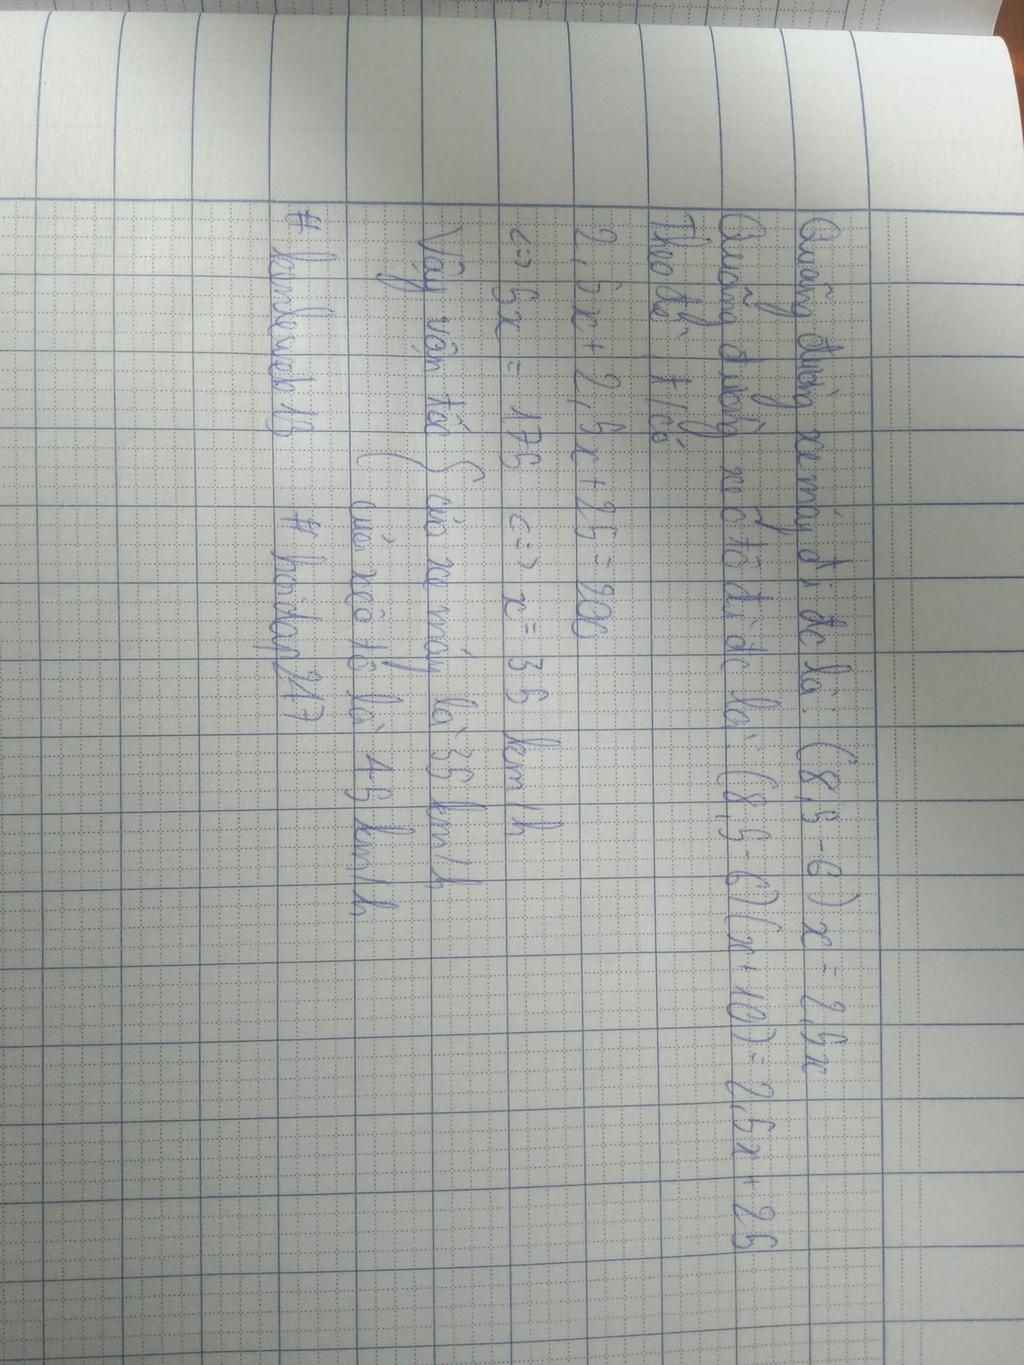 Quãng đường xe máy đi đc là: (8,5-6)x = 2,5x
Quãng đường xe ô tô đi đc là: (8,5-6)(x+10) = 2,5x + 25
Theo đề t/có
2,5x + 2,5x + 25 = 200
<=> 5x = 175 <=> x = 35 km/h
Vậy vận tốc { của xe máy là 35 km/h
của xe ô tô là 45 km/h
# hoidap247